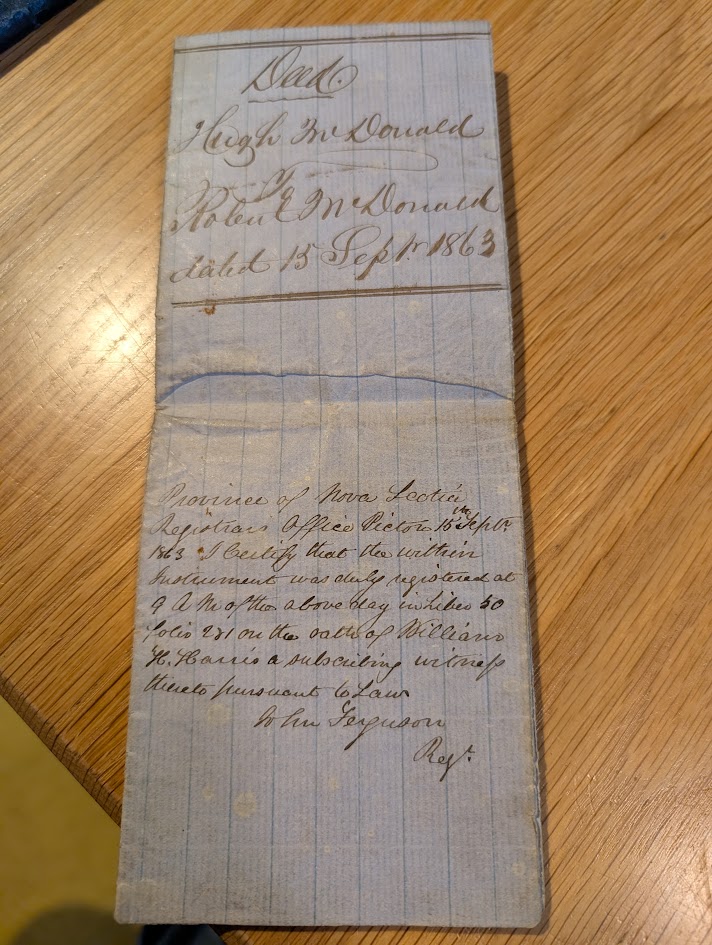 Deed
Hugh McDonald
to
E McDonald
dated 15 Sepr. 1863
Province of Nova Scotia
Registrars Office Pictou 15th Septr.
1863 I Certify that the within
Instrument was duly registered at
9 A M of the above day in liber 50
folio on the oath of William
H. Harris a subscribing witness
thereto pursuant to Law
John Ferguson
Regr.